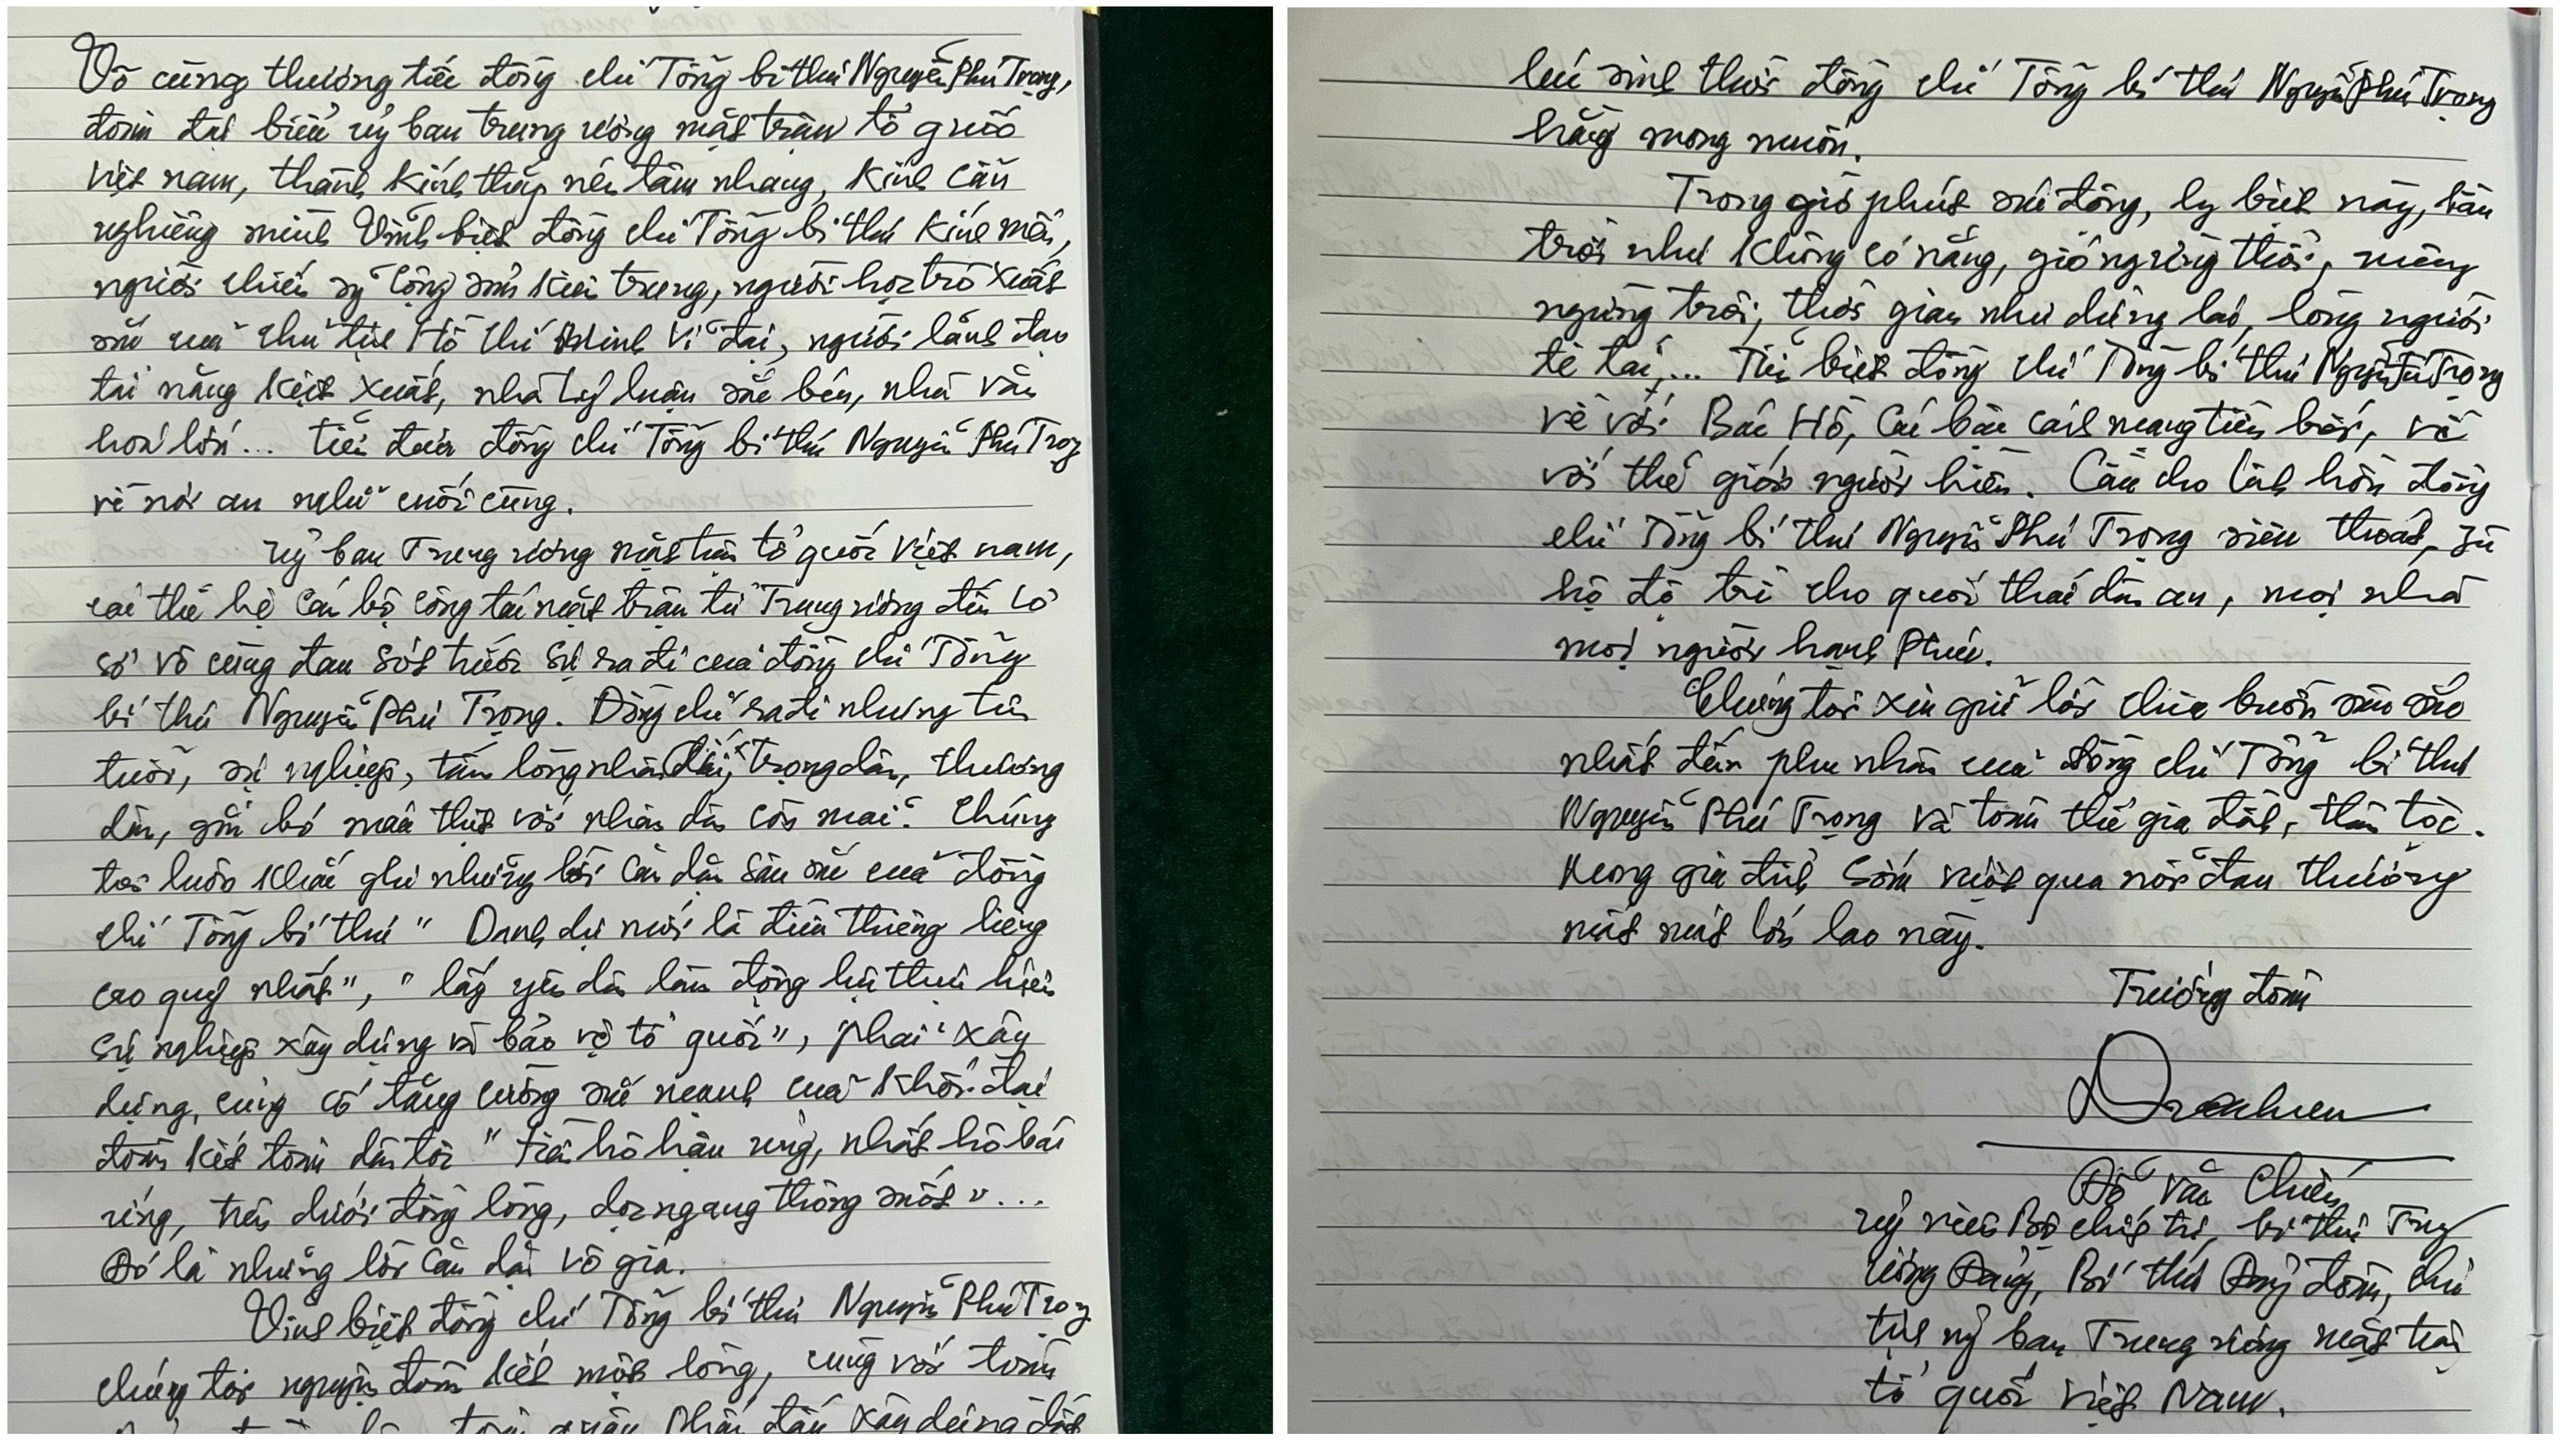 Vô cùng thương tiếc đồng chí Tổng bí thư Nguyễn Phú Trọng,
đoàn đại biểu ủy ban trung ương mặt trận tổ quốc
Việt nam, thành kính thắp nén tâm nhang, kính cẩn
nghiêng mình Vĩnh biệt đồng chí Tổng bí thư kính mến,
người chiến sỹ Cộng sản kiên trung, người học trò xuất
sắc của chủ tịch Hồ Chí Minh vĩ đại, người lãnh đạo
tài năng kiệt xuất, nhà lý luận sắc bén, nhà văn
hoá lớn... tiễn đưa đồng chí Tổng bí thư Nguyễn Phú Trọng
về nơi an nghỉ cuối cùng.
Uỷ ban Trung ương mặt trận tổ quốc Việt nam,
các thế hệ cán bộ công tác mặt trận từ Trung ương đến cơ
sở vô cùng đau sót trước sự ra đi của đồng chí Tổng
bí thư Nguyễn Phú Trọng. Đồng chí ra đi nhưng tên
tuổi, sự nghiệp, tấm lòng nhân ái, trọng dân, thương
dân, gắn bó máu thịt với nhân dân còn mãi. Chúng
tôi luôn khắc ghi những lời căn dặn sâu sắc của đồng
chí Tổng bí thư "Danh dự mới là điều thiêng liêng
cao quý nhất", "lấy yên dân làm động lực thực hiện
sự nghiệp xây dựng và bảo vệ tổ quốc", phải xây
dựng, củng cố tăng cường sức mạnh của khối đại
đoàn kết toàn dân tộc "tiền hô hậu ủng, nhất hô bá
ứng, trên dưới đồng lòng, dọc ngang thông suốt"...
Đó là những lời căn dặn vô giá.
Vĩnh biệt đồng chí Tổng bí thư Nguyễn Phú Trọng
chúng tôi nguyện đoàn kết một lòng, cùng với toàn
toàn quân phấn đấu xây dựng đất
lúc sinh thời đồng chí Tổng bí thư Nguyễn Phú Trọng
hằng mong muốn.
Trong giờ phút xúc động, ly biệt này, bầu
trời như không có nắng, gió ngừng thổi, mây
ngừng trôi, thời gian như dừng lại, lòng người
tê tái,... Tiễn biệt đồng chí Tổng bí thư Nguyễn Phú Trọng
về với Bác Hồ, các bậc cách mạng tiền bối, về
với thế giới người hiền. Cầu cho linh hồn đồng
chí Tổng bí thư Nguyễn Phú Trọng siêu thoát,
hộ độ trì cho quốc thái dân an, mọi nhà
mọi người hạnh phúc.
Chúng tôi xin gửi lời chia buồn sâu sắc
nhất đến phu nhân của đồng chí Tổng bí thư
Nguyễn Phú Trọng và toàn thể gia đình, thân tộc.
Mong gia đình sớm vượt qua nỗi đau thương
mất mát lớn lao này.
Trưởng đoàn
Đỗ Văn Chiến
Uỷ viên Bộ chính trị, bí thư Trung
ương Đảng, Bí thư Đảng đoàn, chủ
tịch uỷ ban Trung ương mặt trận
tổ quốc Việt Nam.